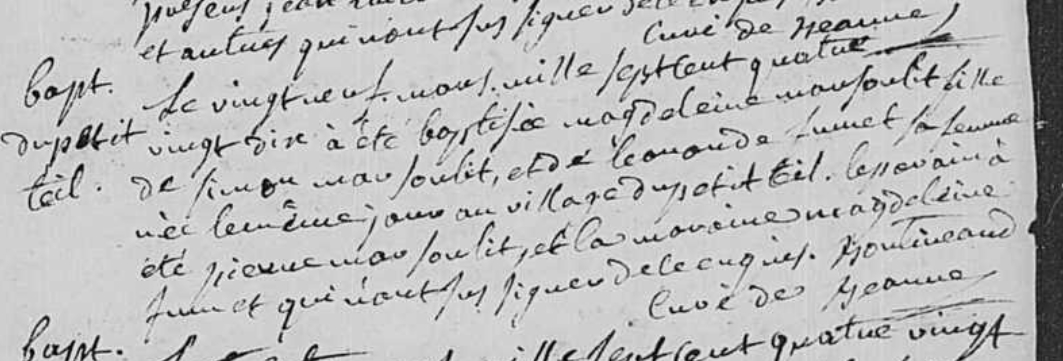 et autres qui n'ont sus signer de ce enquis
curé de yeanne
bapt. Le vingt neuf mars mille sept cent quatre
du petit vingt dix à été baptisée magdeleine marsoulit fille
teil. de simon marsoulit, et de léonarde fumet sa femme
née le même jour au village du petit teil. le parain à
été pierre marsoulit, et la maraine magdeleine
fumet qui n'ont sus signer de ce enquis.
curé de yeanne
bapt. mille sept cent quatre vingt